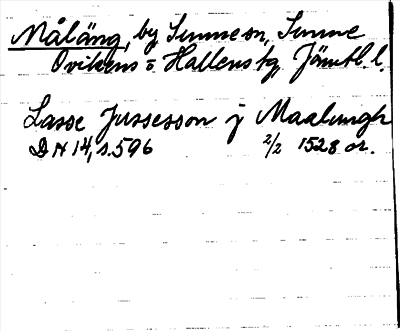 Måläng, by Sunneson, Sunne
Ovikens o. Hallens tg, Jämtl. l.
Lasse Jussesson j Maalungh
DN 14, s. 596 2/2 1528 or.